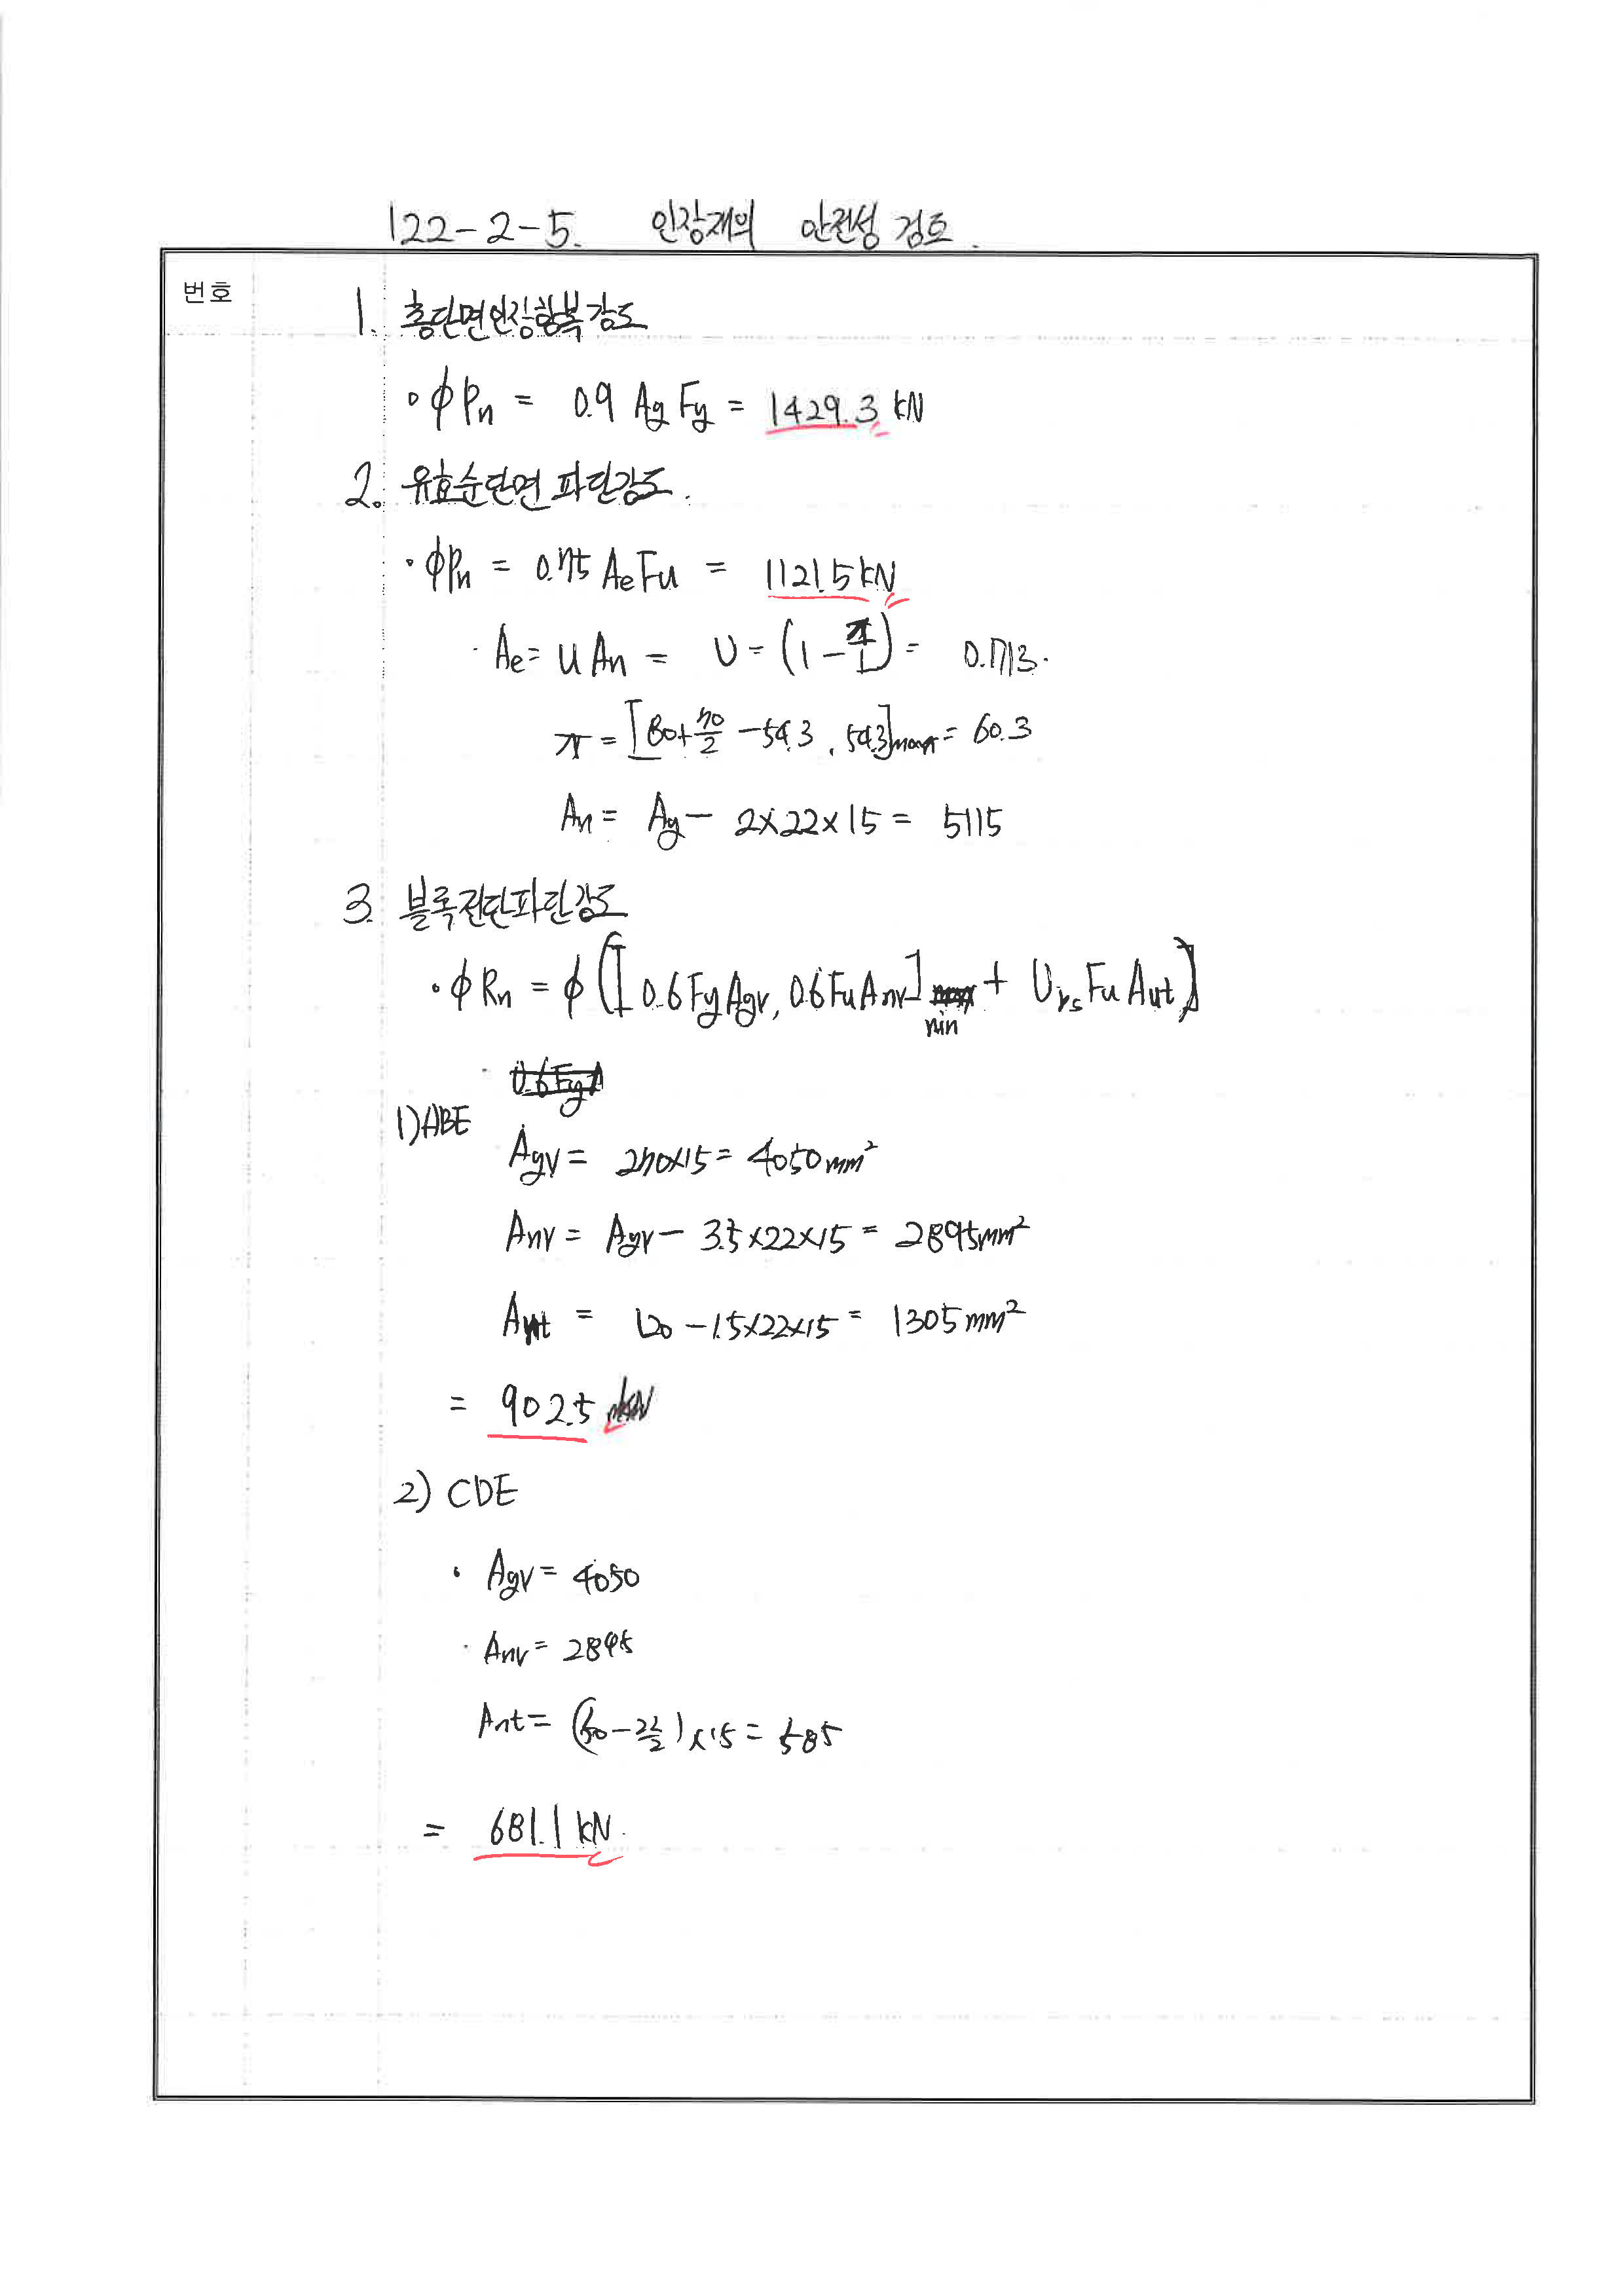 122-2-5. 인장재의 안전성 검토.
번호
1. 총단면인장항복강도
∘ϕPn = 0.9 Ag Fy = 1429.3 kN
2. 유효순단면 파단강도.
·ϕPn = 0.75 Ae Fu = 1121.5 kN
· Ae = U An = U = (1 - x̄/L) = 0.7713.
x̄ = [80+70/2 - 54.3, 54.3]max = 60.3
An = Ag - 2×22×15 = 5115
3. 블록전단파단강도
∘ϕRn = ϕ([0.6FyAgv, 0.6FuAnv]min + Ubs Fu Ant)
1) ABE
Agv = 270×15 = 4050mm²
Anv = Agv - 3.5×22×15 = 2895mm²
Ant = 120 - 1.5×22×15 = 1305mm²
= 902.5 kN
2) CDE
· Agv = 4050
· Anv = 2895
Ant = (50 - 22/2)×15 = 585
= 681.1 kN.